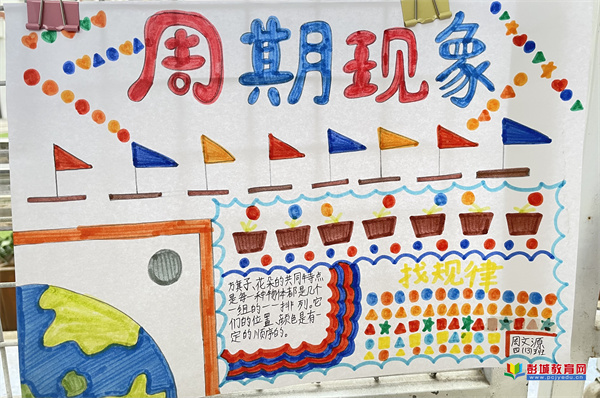 周期现象
找规律
万具子、花朵的共同特点
是每一种物体都是几个
一组的一一排列。它
们的位置、颜色是有
定的顺序的。
周文源
四(13)班
彭城教育网
www.pcjyedu.cn